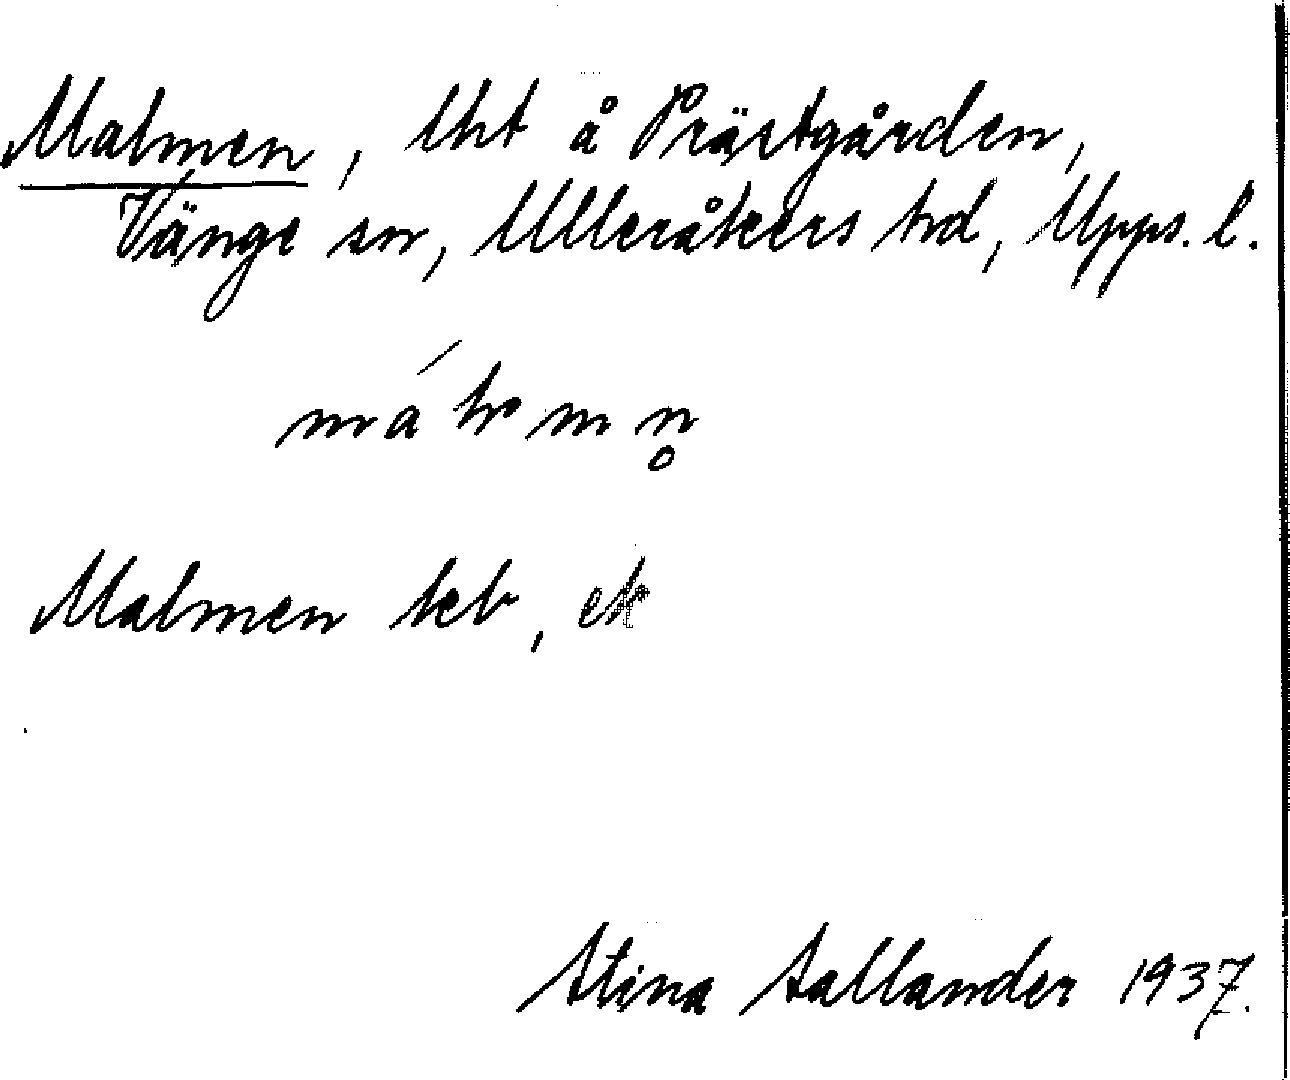 Malmen, lht å Prästgården,
Vänge sn, Ulleråkers hd, Upps. l.
Malmen keb, ek
Stina Sallander 1937.